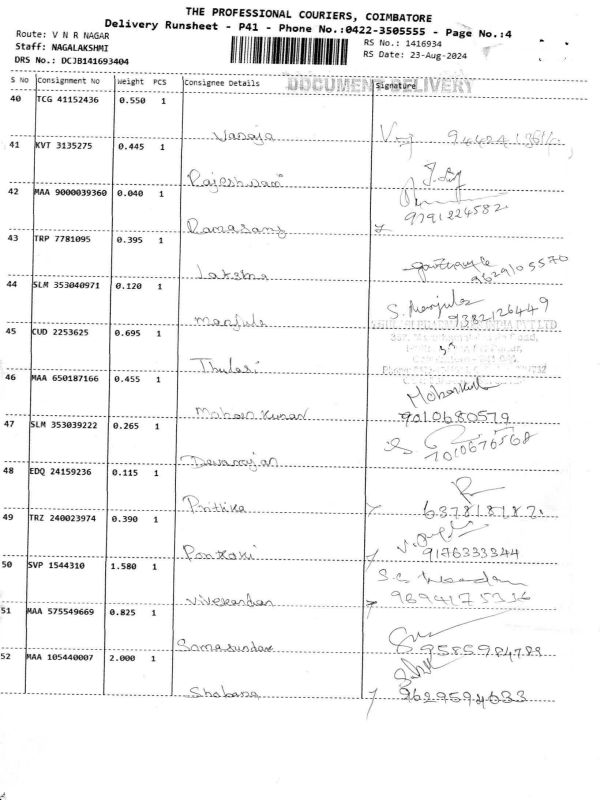 THE PROFESSIONAL COURIERS, COIMBATORE
Delivery Runsheet - P41 - Phone No.:0422-3505555 - Page No.:4
Route: V N R NAGAR
Staff: NAGALAKSHMI
DRS No.: DCJB141693404
RS No.: 1416934
RS Date: 23-Aug-2024
DOCUMENT DELIVERY
S No Consignment No Weight PCS Consignee Details Signature
40 TCG 41152436 0.550 1
Vanaja
41 KVT 3135275 0.445 1
Rajeshwari
42 MAA 9000039360 0.040 1
9791224582
Ramasamy
43 TRP 7781095 0.395 1
9629105570
Lakshna
44 SLM 353040971 0.120 1
S. Manjula
9382126449
Manjula
45 CUD 2253625 0.695 1
Thulasi
46 MAA 650187166 0.455 1
Mohankumar 9010680579
47 SLM 353039222 0.265 1
7010676568
Devarajan
48 EDQ 24159236 0.115 1
Prithika
49 TRZ 240023974 0.390 1
9176333344
50 SVP 1544310 1.580 1
Vivekanandan
51 MAA 575549669 0.825 1
Somasundar 9585984788
52 MAA 105440007 2.000 1
Shabana 9629594633